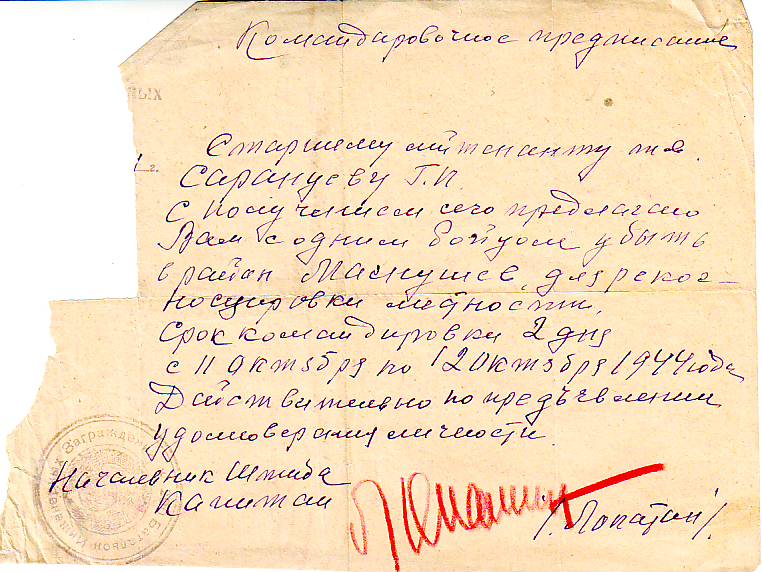 Командировочное предписание
ных
г.
Старшему лейтенанту тов.
Саранцеву Г.П.
С получением сего предлагаю
Вам с одним бойцом убыть
в район для реког-
носцировки местности.
Срок командировки 2 дня
с 11 октября по 12 октября 1944 года
Действительно по предъявлении
удостоверения личности.
Начальник Штаба
Капитан
/Лопатин/.
Заграждений
Батальон Инженерных